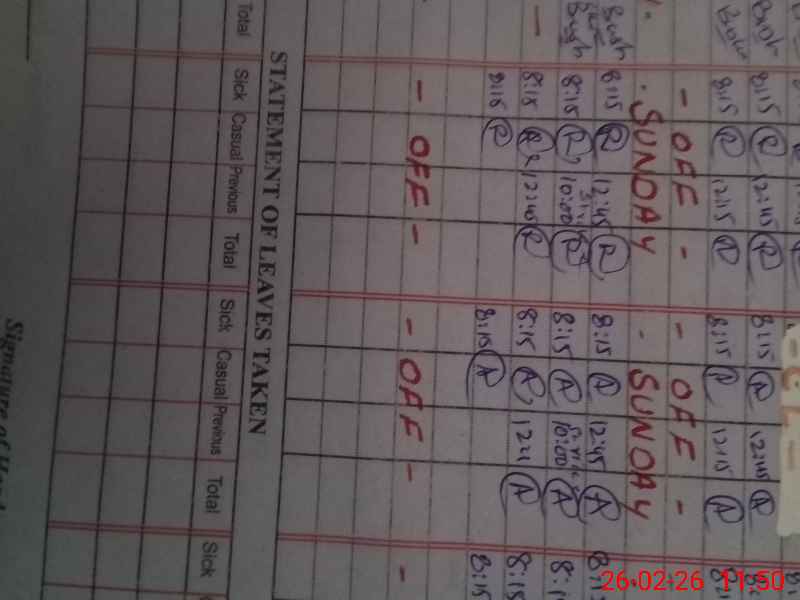 8:15 R 12:45 R 8:15 A 12:45 A
8:15 R 12:15 R 8:15 A 12:15 A
- OFF - - OFF -
SUNDAY SUNDAY
8:15 R 12:45 R 8:15 A 12:45 A
8:15 R 10:00 R 8:15 A 10:00 A
- 8:15 R 12:45 R 8:15 A A 8:15
8:15 R 8:15 A 8:15
- OFF - - OFF - -
STATEMENT OF LEAVES TAKEN
Total Sick Casual Previous Total Sick Casual Previous Total Sick
Signature of
26-02-26 11:50